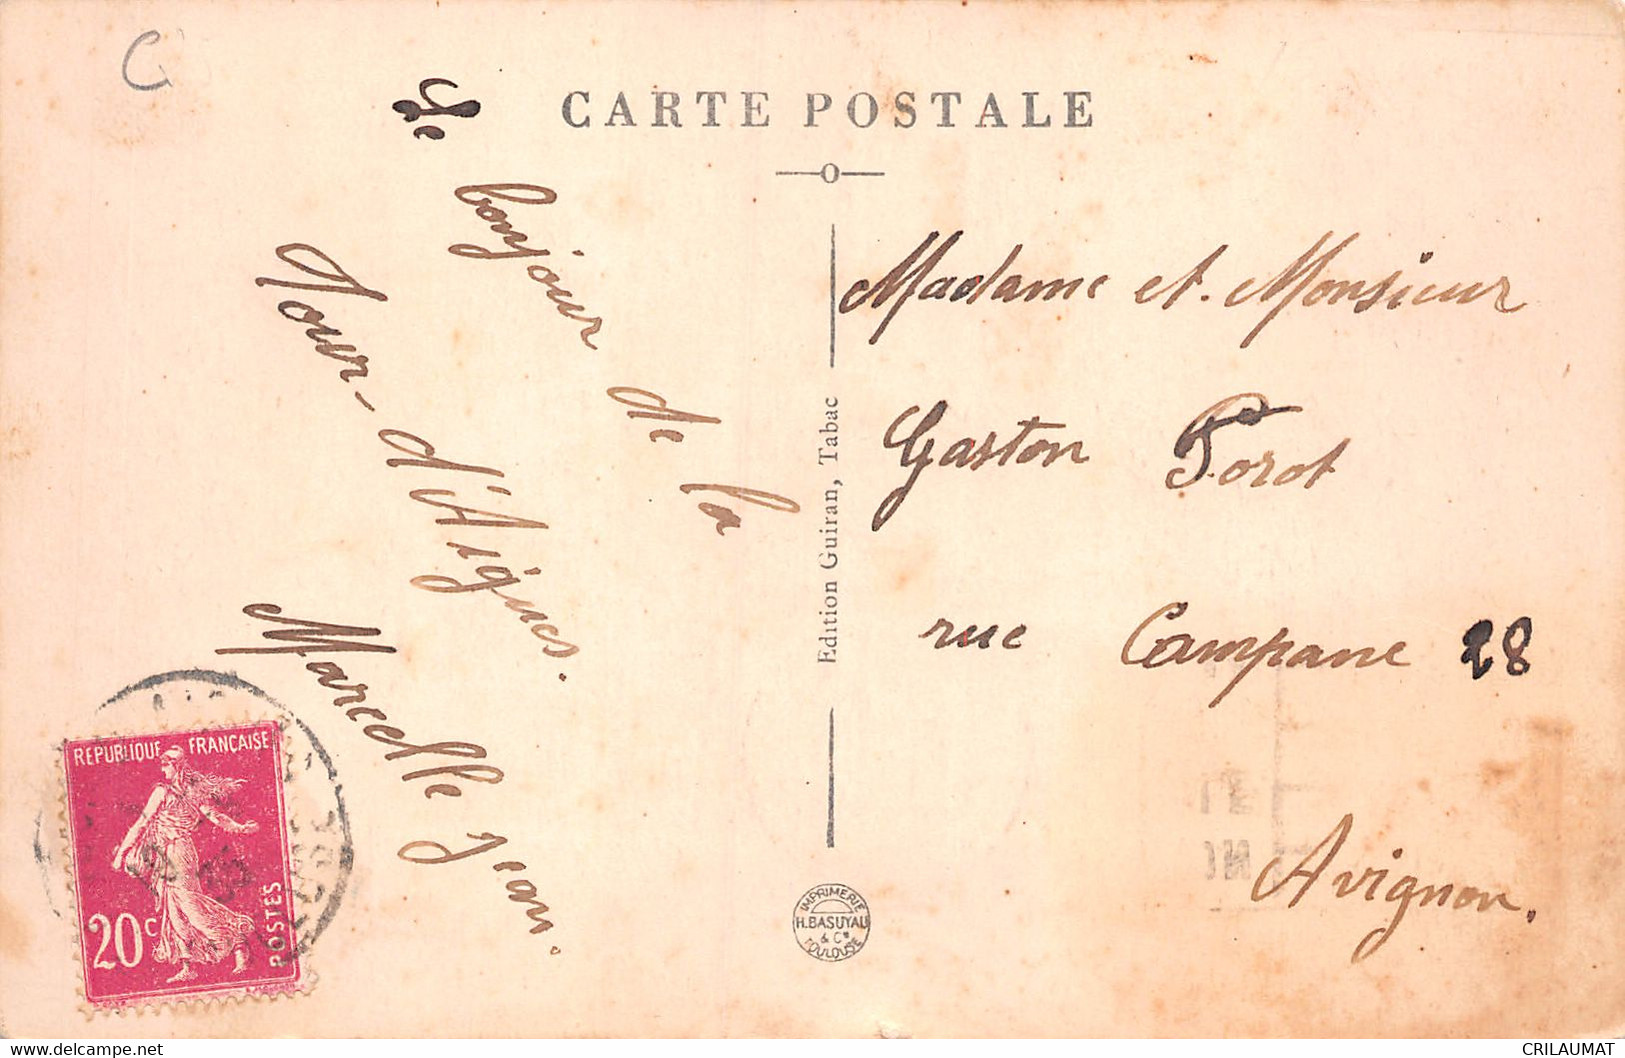 CARTE POSTALE
Le bonjour de la
Tour-d'Aigues.
Marcelle Jean.
Madame et Monsieur
Gaston Porot
rue Campane 28
Avignon.
Edition Guiran, Tabac
IMPRIMERIE
H. BASUYAU
& Cie
TOULOUSE
REPUBLIQUE FRANÇAISE
20c
POSTES
delcampe.net
CRILAUMAT